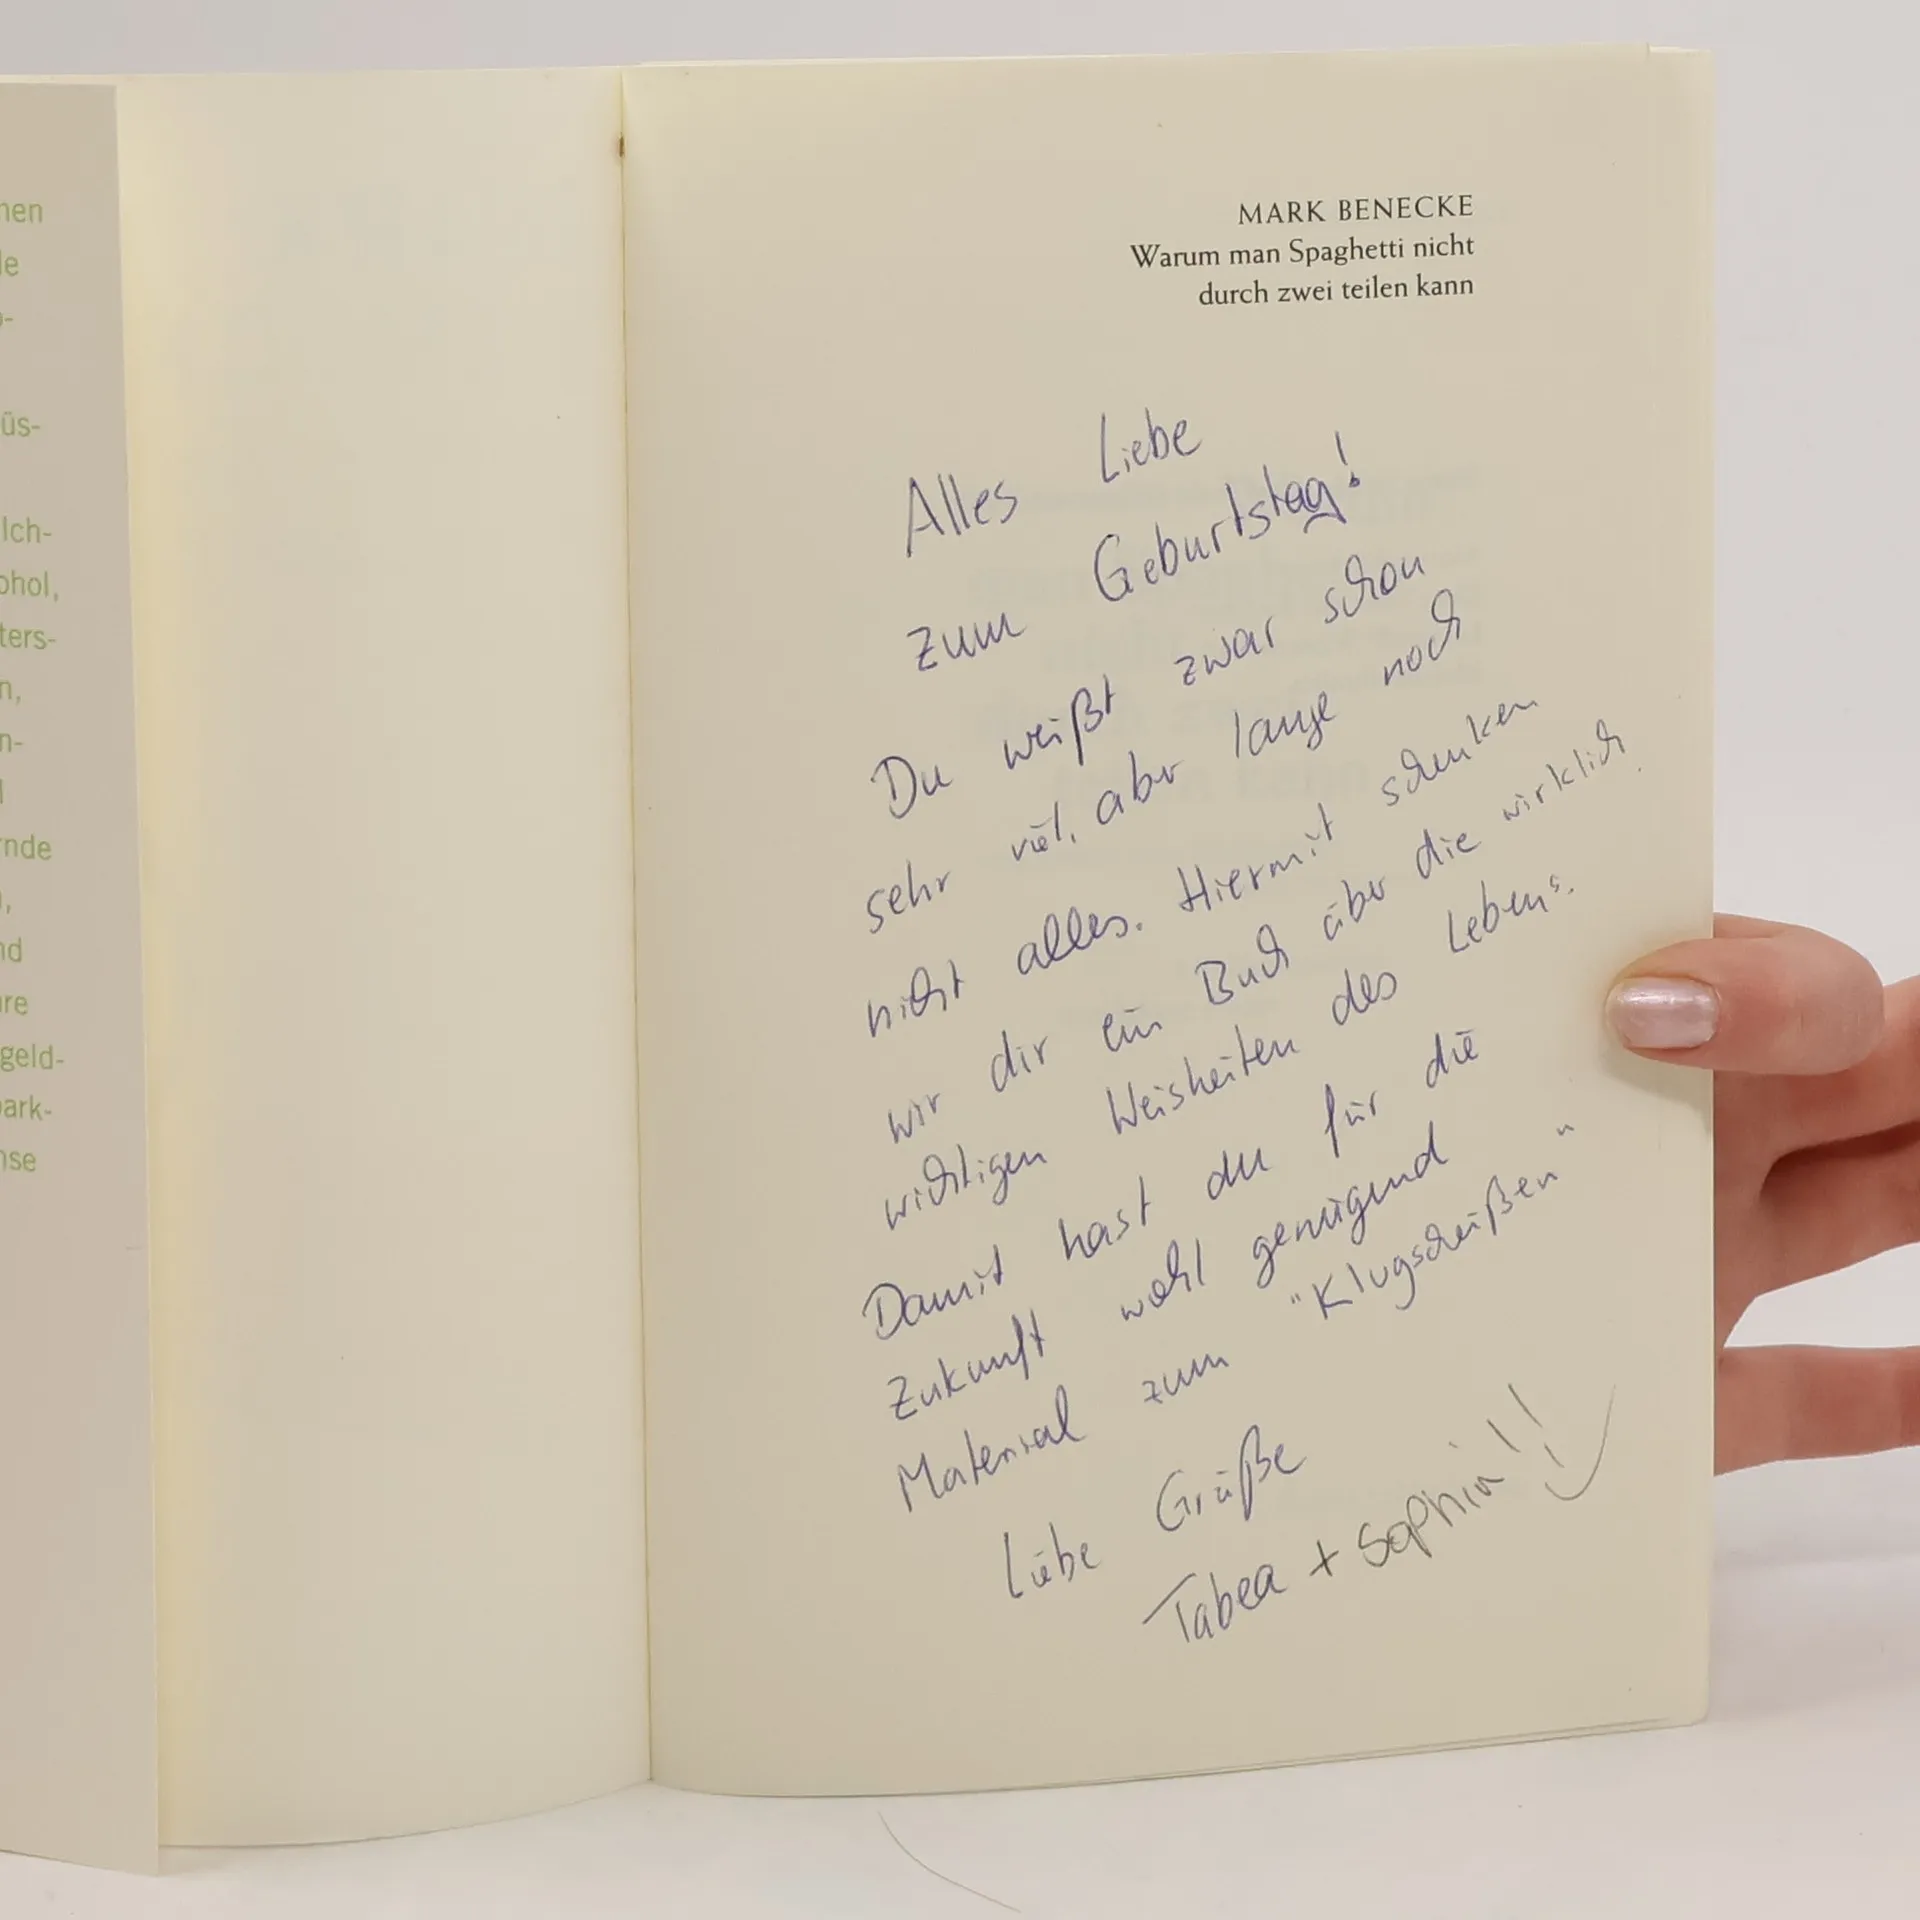 nen
le
o-
üs-
lch-
ohol,
ters-
n,
n-
l
rnde
,
nd
are
geld-
park-
nse
MARK BENECKE
Warum man Spaghetti nicht
durch zwei teilen kann
Alles Liebe
zum Geburtstag!
Du weißt zwar schon
sehr viel, aber lange noch
nicht alles. Hiermit schenken
wir dir ein Buch über die wirklich
wichtigen Weisheiten des Lebens.
Damit hast du für die
Zukunft wohl genügend
Material zum "Klugscheißen"
Liebe Grüße
Tabea + Sophia!!